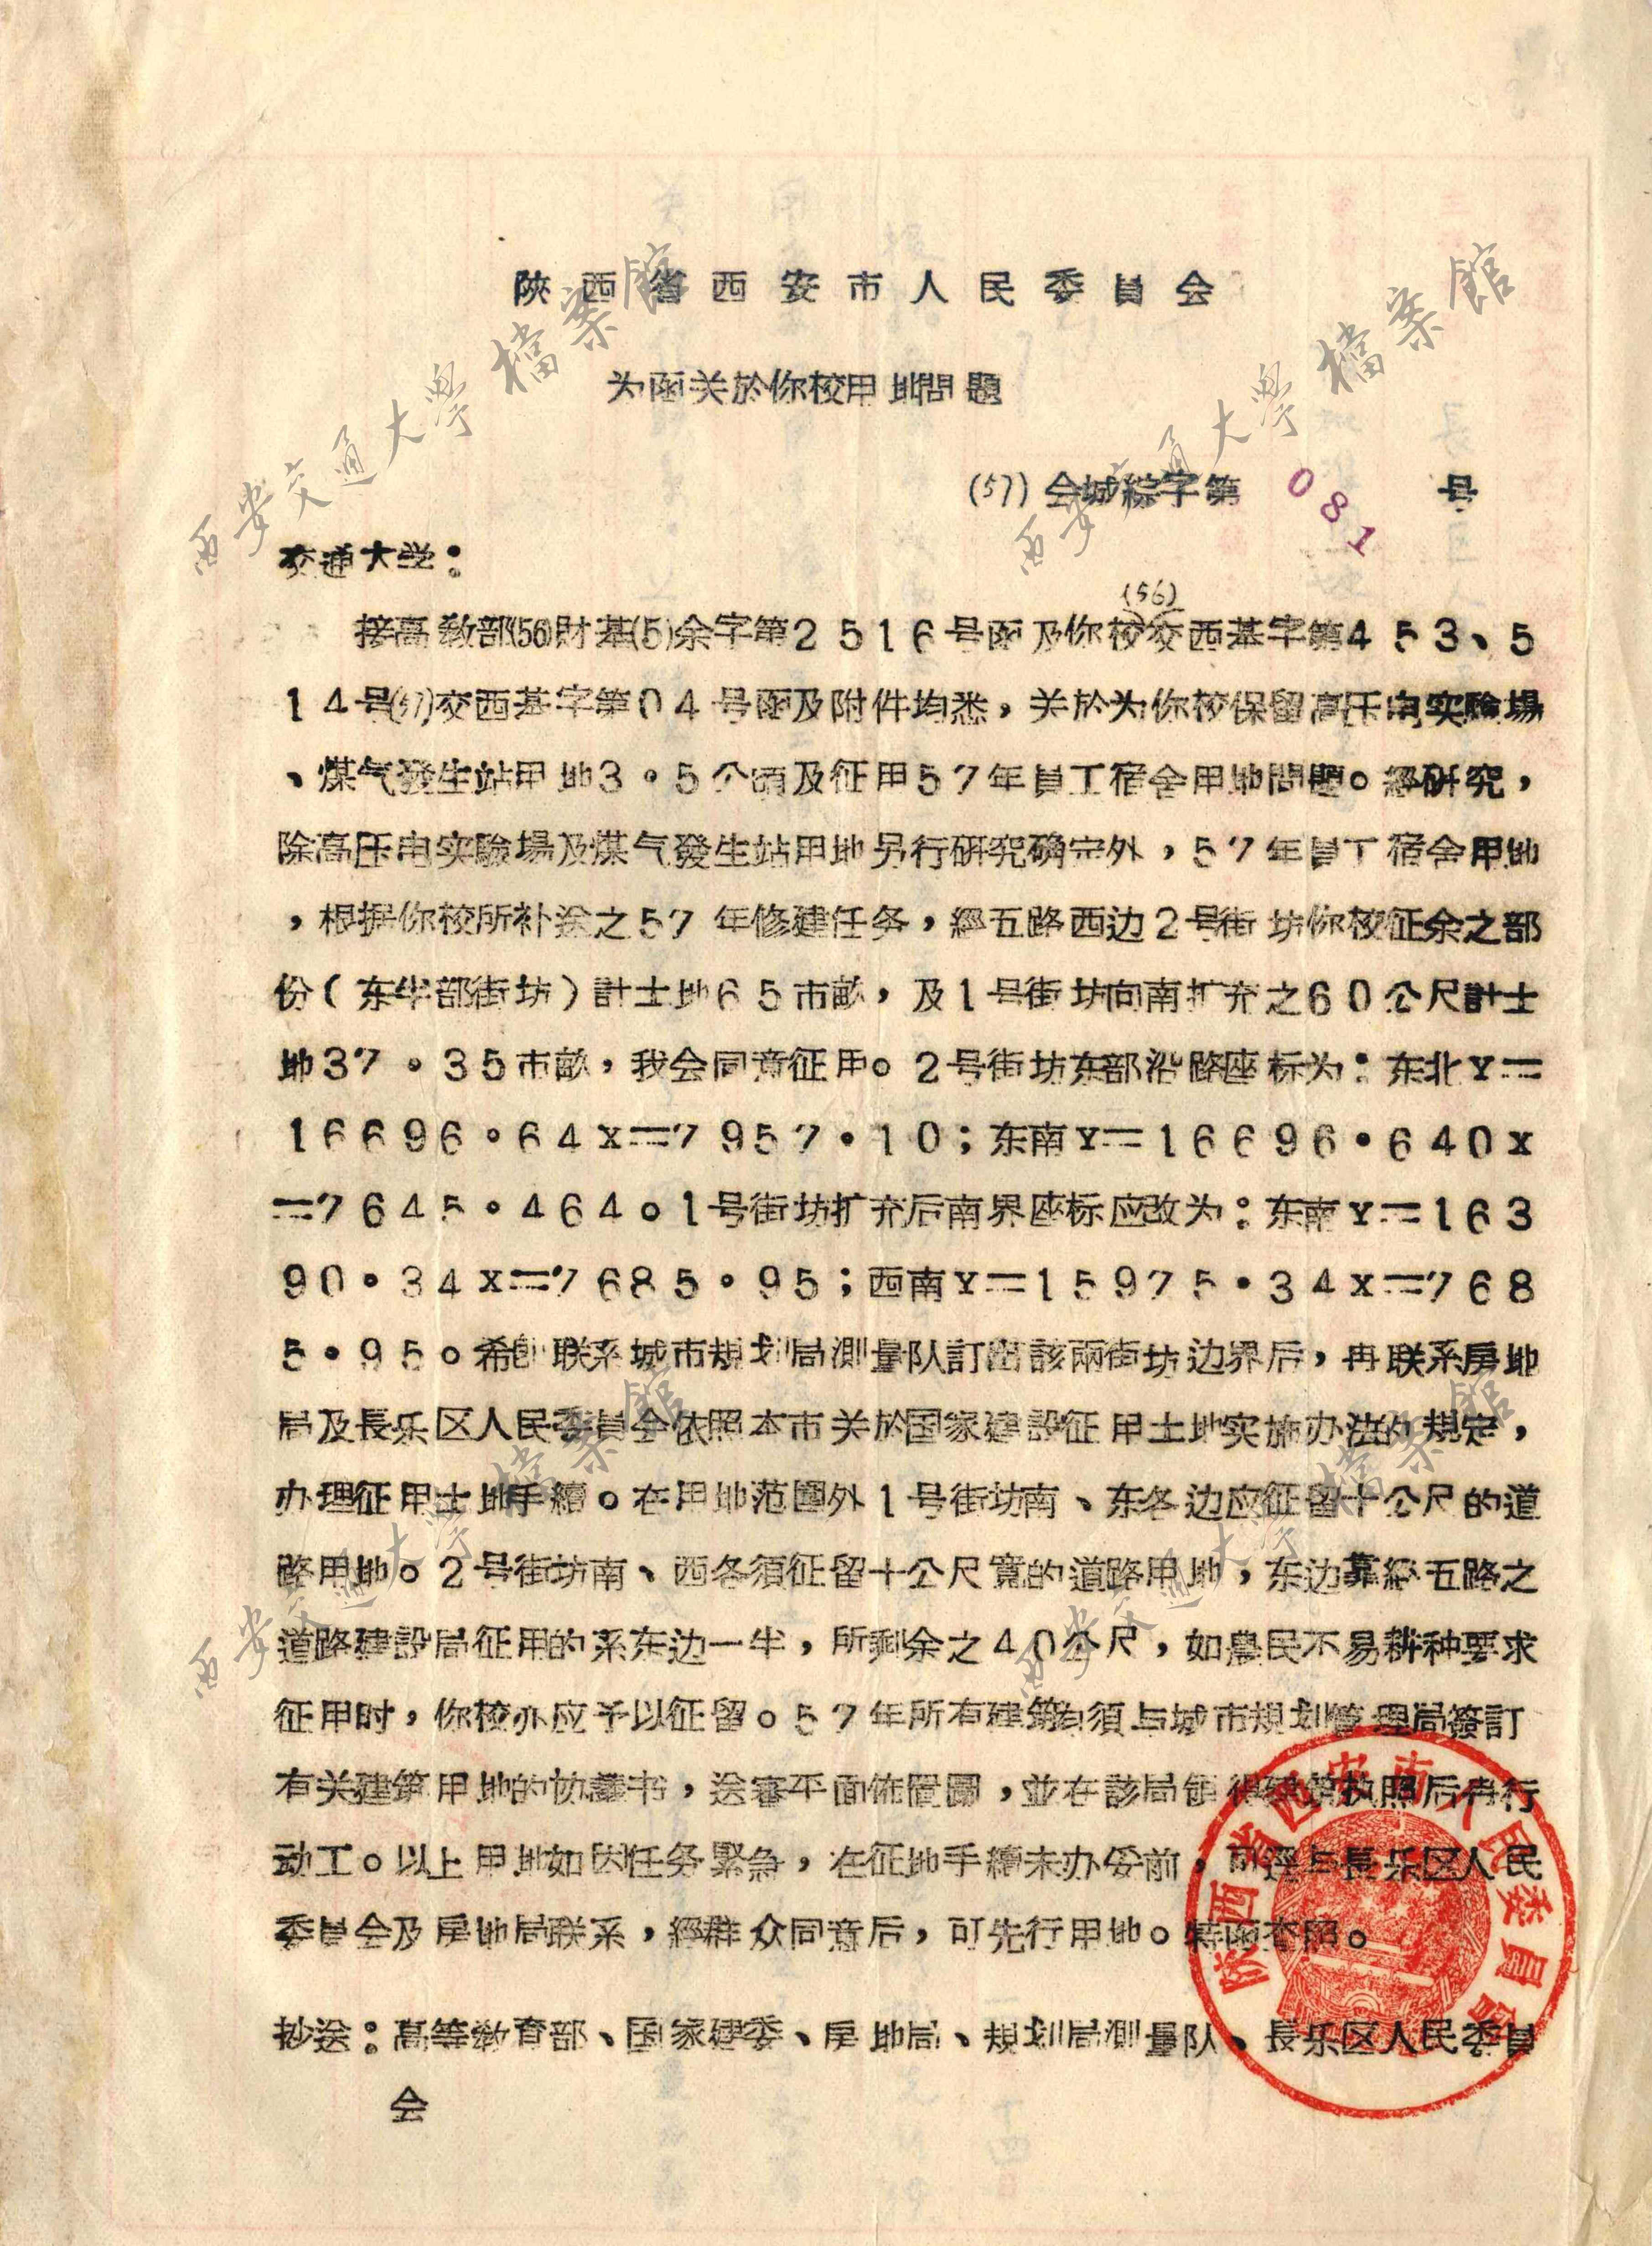 陝西省西安市人民委員会
为函关於你校用地問題
(57)会城綜字第 081 号
交通大学：
(56)
接高教部(56)財基(5)余字第2516号函及你校交西基字第453、5
14号(57)交西基字第04号函及附件均悉，关於为你校保留高压电实驗場
、煤气發生站用地3.5公頃及征用57年員工宿舍用地問題。經研究，
除高压电实驗場及煤气發生站用地另行研究确定外，57年員工宿舍用地
，根据你校所补送之57年修建任务，經五路西边2号街坊你校征余之部
份（东半部街坊）計土地65市畝，及1号街坊向南扩充之60公尺計土
地37.35市畝，我会同意征用。2号街坊东部沿路座标为：东北Y=
16696.64X=7957.10；东南Y=16696.640X
=7645.464。1号街坊扩充后南界座标应改为：东南Y=163
90.34X=7685.95；西南Y=15975.34X=768
5.95。希即联系城市規划局測量队訂出該兩街坊边界后，再联系房地
局及長乐区人民委員会依照本市关於国家建設征用土地实施办法的規定，
办理征用土地手續。在用地范圍外1号街坊南、东各边应征留十公尺的道
路用地。2号街坊南、西各須征留十公尺寬的道路用地，东边靠經五路之
道路建設局征用的系东边一半，所剩余之40公尺，如農民不易耕种要求
征用时，你校亦应予以征留。57年所有建築均須与城市規划管理局簽訂
有关建築用地的协議书，送審平面佈置圖，並在該局領得建築执照后再行
动工。以上用地如因任务緊急，在征地手續未办妥前，可逕与長乐区人民
委員会及房地局联系，經群众同意后，可先行用地。特函查照。
抄送：高等教育部、国家建委、房地局、規划局測量队、長乐区人民委員
会
陝西省西安市人民委員會
西安交通大學檔案館
西安交通大學檔案館
西安交通大學檔案館
西安交通大學檔案館